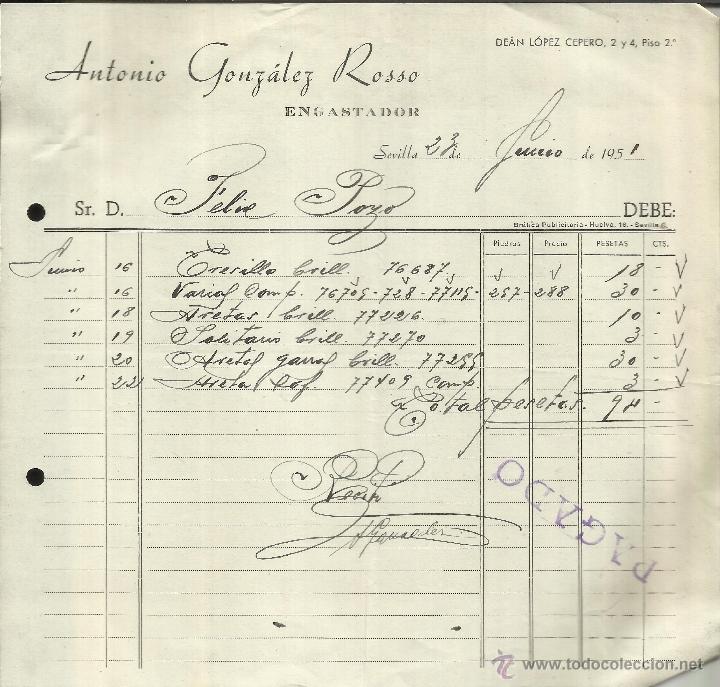 DEÁN LÓPEZ CEPERO, 2 y 4, Piso 2.º
Antonio González Rosso
ENGASTADOR
Sevilla 23 de Junio de 1951
Sr. D. Felix Pozo DEBE:
Gráfica Publicitaria - Huelva, 16. - Sevilla
Piedras Precio PESETAS CTS.
Junio 16 Tresillo brill. 76687 18 -
" 16 Varias Comp. 76709-728-77115-257-288 30 -
" 18 Aretas brill. 77226 10 -
" 19 Solitario brill. 77270 3 -
" 20 Aretas garras brill. 77255 30 -
" 22 Areta 77409 Comp. 3 -
Total pesetas. 94 -
Recibí
A González
PAGADO
www.todocoleccion.net